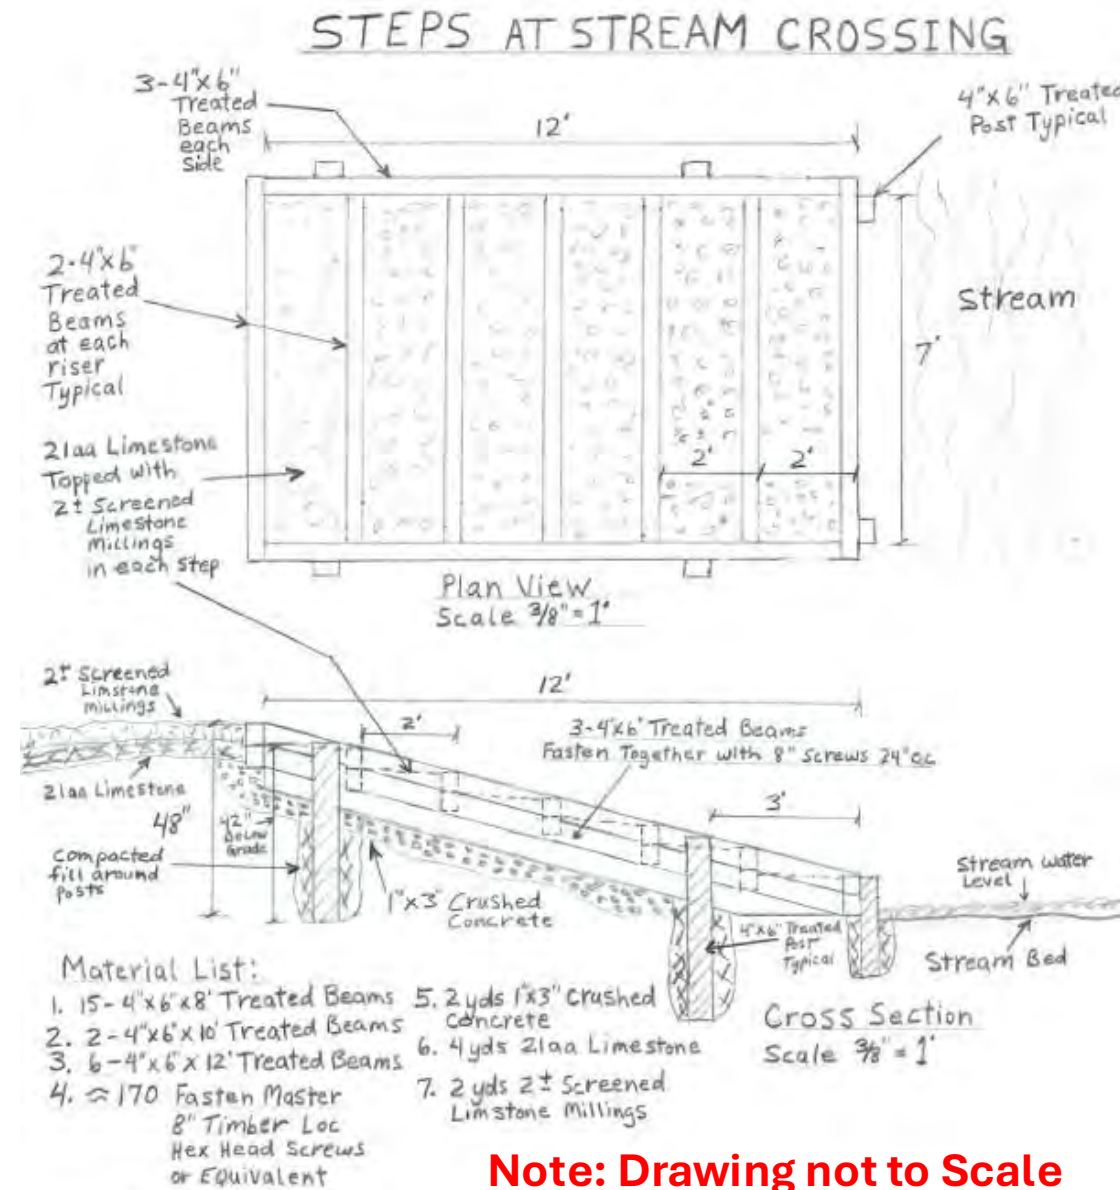 STEPS AT STREAM CROSSING
3-4"x6"
Treated
Beams
each
Side
12'
4"x6" Treated
Post Typical
2-4"x6"
Treated
Beams
at each
riser
Typical
Stream
7'
21aa Limestone
Topped with
2± Screened
Limestone
Millings
in each Step
2'
2'
Plan View
Scale 3/8" = 1'
2± Screened
Limstone
millings
12'
2'
3-4"x6" Treated Beams
Fasten Together with 8" Screws 24" oc
3'
21aa Limestone
48"
42"
below
Grade
Compacted
fill around
Posts
1"x3" Crushed
Concrete
4"x6" Treated
Post
Typical
Stream Water
Level
Stream Bed
Cross Section
Scale 3/8" = 1'
Material List:
1. 15-4"x6"x8' Treated Beams
2. 2-4"x6"x10' Treated Beams
3. 6-4"x6"x12' Treated Beams
4. ≈170 Fasten Master
8" Timber Loc
Hex Head Screws
or Equivalent
5. 2 yds 1"x3" Crushed
Concrete
6. 4 yds 21aa Limestone
7. 2 yds 2± Screened
Limstone Millings
Note: Drawing not to Scale